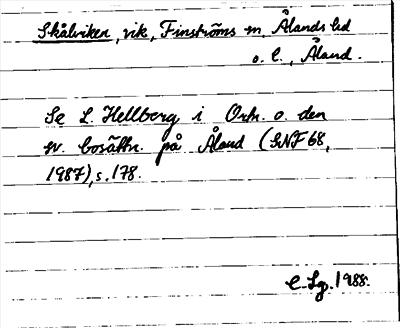 Skålviken, vik, Finströms sn, Ålands hd
o. l., Åland.
Se L. Hellberg i Ortn. o. den
sv. bosättn. på Åland (SNF 68,
1987), s. 178.
1988.